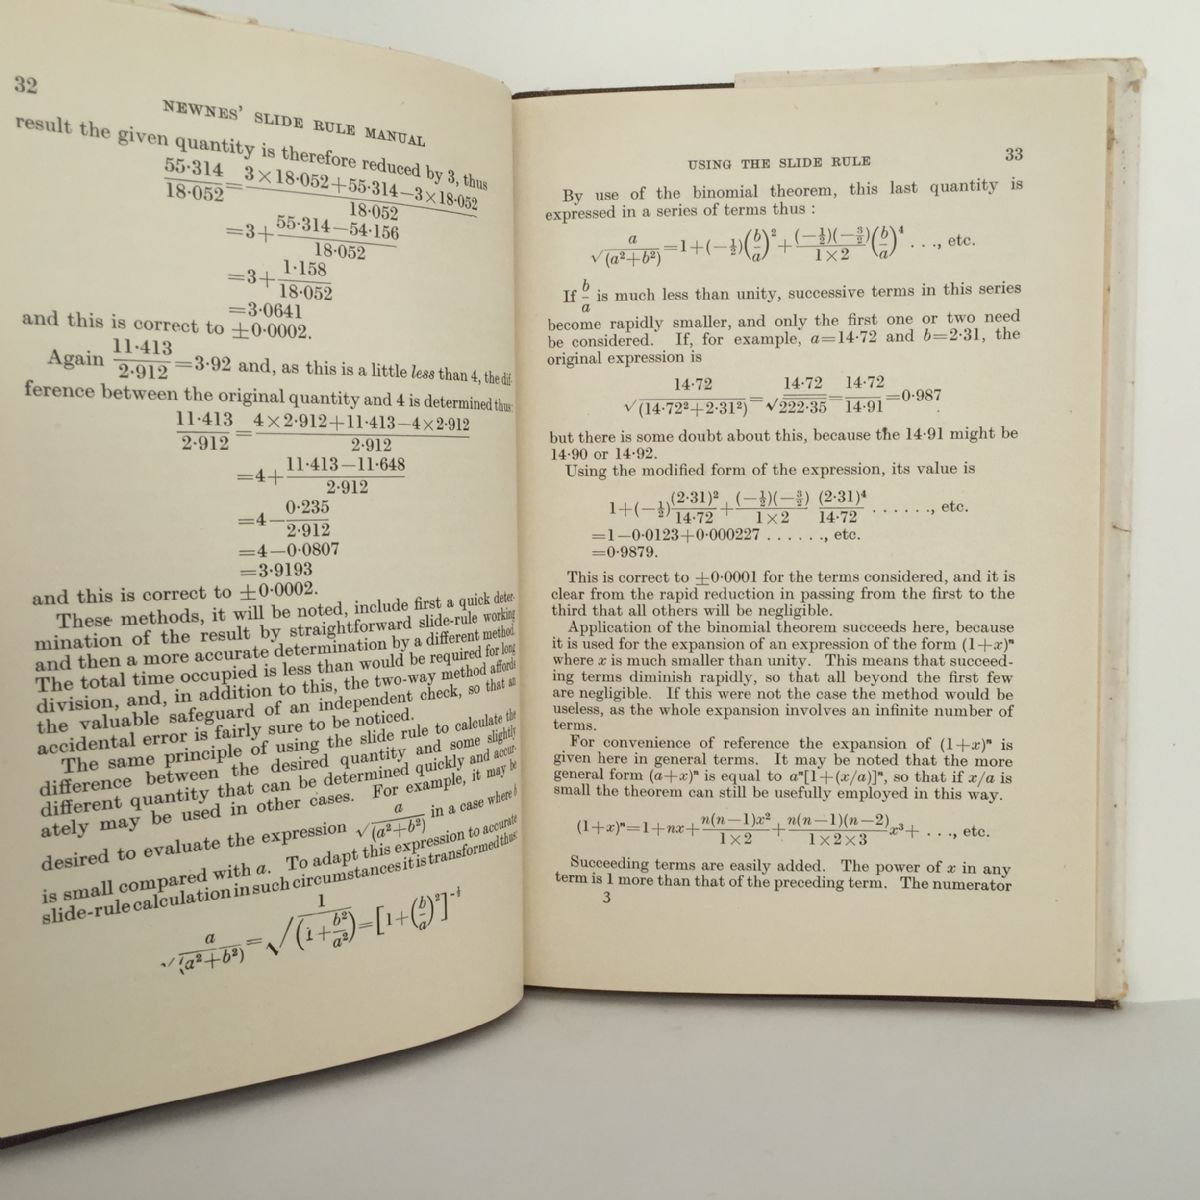 32
NEWNES' SLIDE RULE MANUAL
result the given quantity is therefore reduced by 3, thus
55·314/18·052 = (3×18·052+55·314−3×18·052)/18·052
=3+(55·314−54·156)/18·052
=3+1·158/18·052
=3·0641
and this is correct to ±0·0002.
Again 11·413/2·912 =3·92 and, as this is a little less than 4, the dif-
ference between the original quantity and 4 is determined thus:
11·413/2·912 = (4×2·912+11·413−4×2·912)/2·912
=4+(11·413−11·648)/2·912
=4−0·235/2·912
=4−0·0807
=3·9193
and this is correct to ±0·0002.
These methods, it will be noted, include first a quick deter-
mination of the result by straightforward slide-rule working
and then a more accurate determination by a different method.
The total time occupied is less than would be required for long
division, and, in addition to this, the two-way method affords
the valuable safeguard of an independent check, so that an
accidental error is fairly sure to be noticed.
The same principle of using the slide rule to calculate the
difference between the desired quantity and some slightly
different quantity that can be determined quickly and accur-
ately may be used in other cases. For example, it may be
desired to evaluate the expression a/√(a²+b²) in a case where b
is small compared with a. To adapt this expression to accurate
slide-rule calculation in such circumstances it is transformed thus:
a/√(a²+b²) = √(1/(1+b²/a²)) = [1+(b/a)²]^-½
USING THE SLIDE RULE
33
By use of the binomial theorem, this last quantity is
expressed in a series of terms thus :
a/√(a²+b²) =1+(−½)(b/a)²+((−½)(−3/2)/1×2)(b/a)⁴ . . ., etc.
If b/a is much less than unity, successive terms in this series
become rapidly smaller, and only the first one or two need
be considered. If, for example, a=14·72 and b=2·31, the
original expression is
14·72/√(14·72²+2·31²) = 14·72/√222·35 = 14·72/14·91 =0·987
but there is some doubt about this, because the 14·91 might be
14·90 or 14·92.
Using the modified form of the expression, its value is
1+(−½)(2·31)²/14·72 + (−½)(−3/2)/1×2 (2·31)⁴/14·72 . . . . . ., etc.
=1−0·0123+0·000227 . . . . . ., etc.
=0·9879.
This is correct to ±0·0001 for the terms considered, and it is
clear from the rapid reduction in passing from the first to the
third that all others will be negligible.
Application of the binomial theorem succeeds here, because
it is used for the expansion of an expression of the form (1+x)ⁿ
where x is much smaller than unity. This means that succeed-
ing terms diminish rapidly, so that all beyond the first few
are negligible. If this were not the case the method would be
useless, as the whole expansion involves an infinite number of
terms.
For convenience of reference the expansion of (1+x)ⁿ is
given here in general terms. It may be noted that the more
general form (a+x)ⁿ is equal to aⁿ[1+(x/a)]ⁿ, so that if x/a is
small the theorem can still be usefully employed in this way.
(1+x)ⁿ=1+nx+n(n−1)x²/1×2 + n(n−1)(n−2)/1×2×3 x³+ . . ., etc.
Succeeding terms are easily added. The power of x in any
term is 1 more than that of the preceding term. The numerator
3